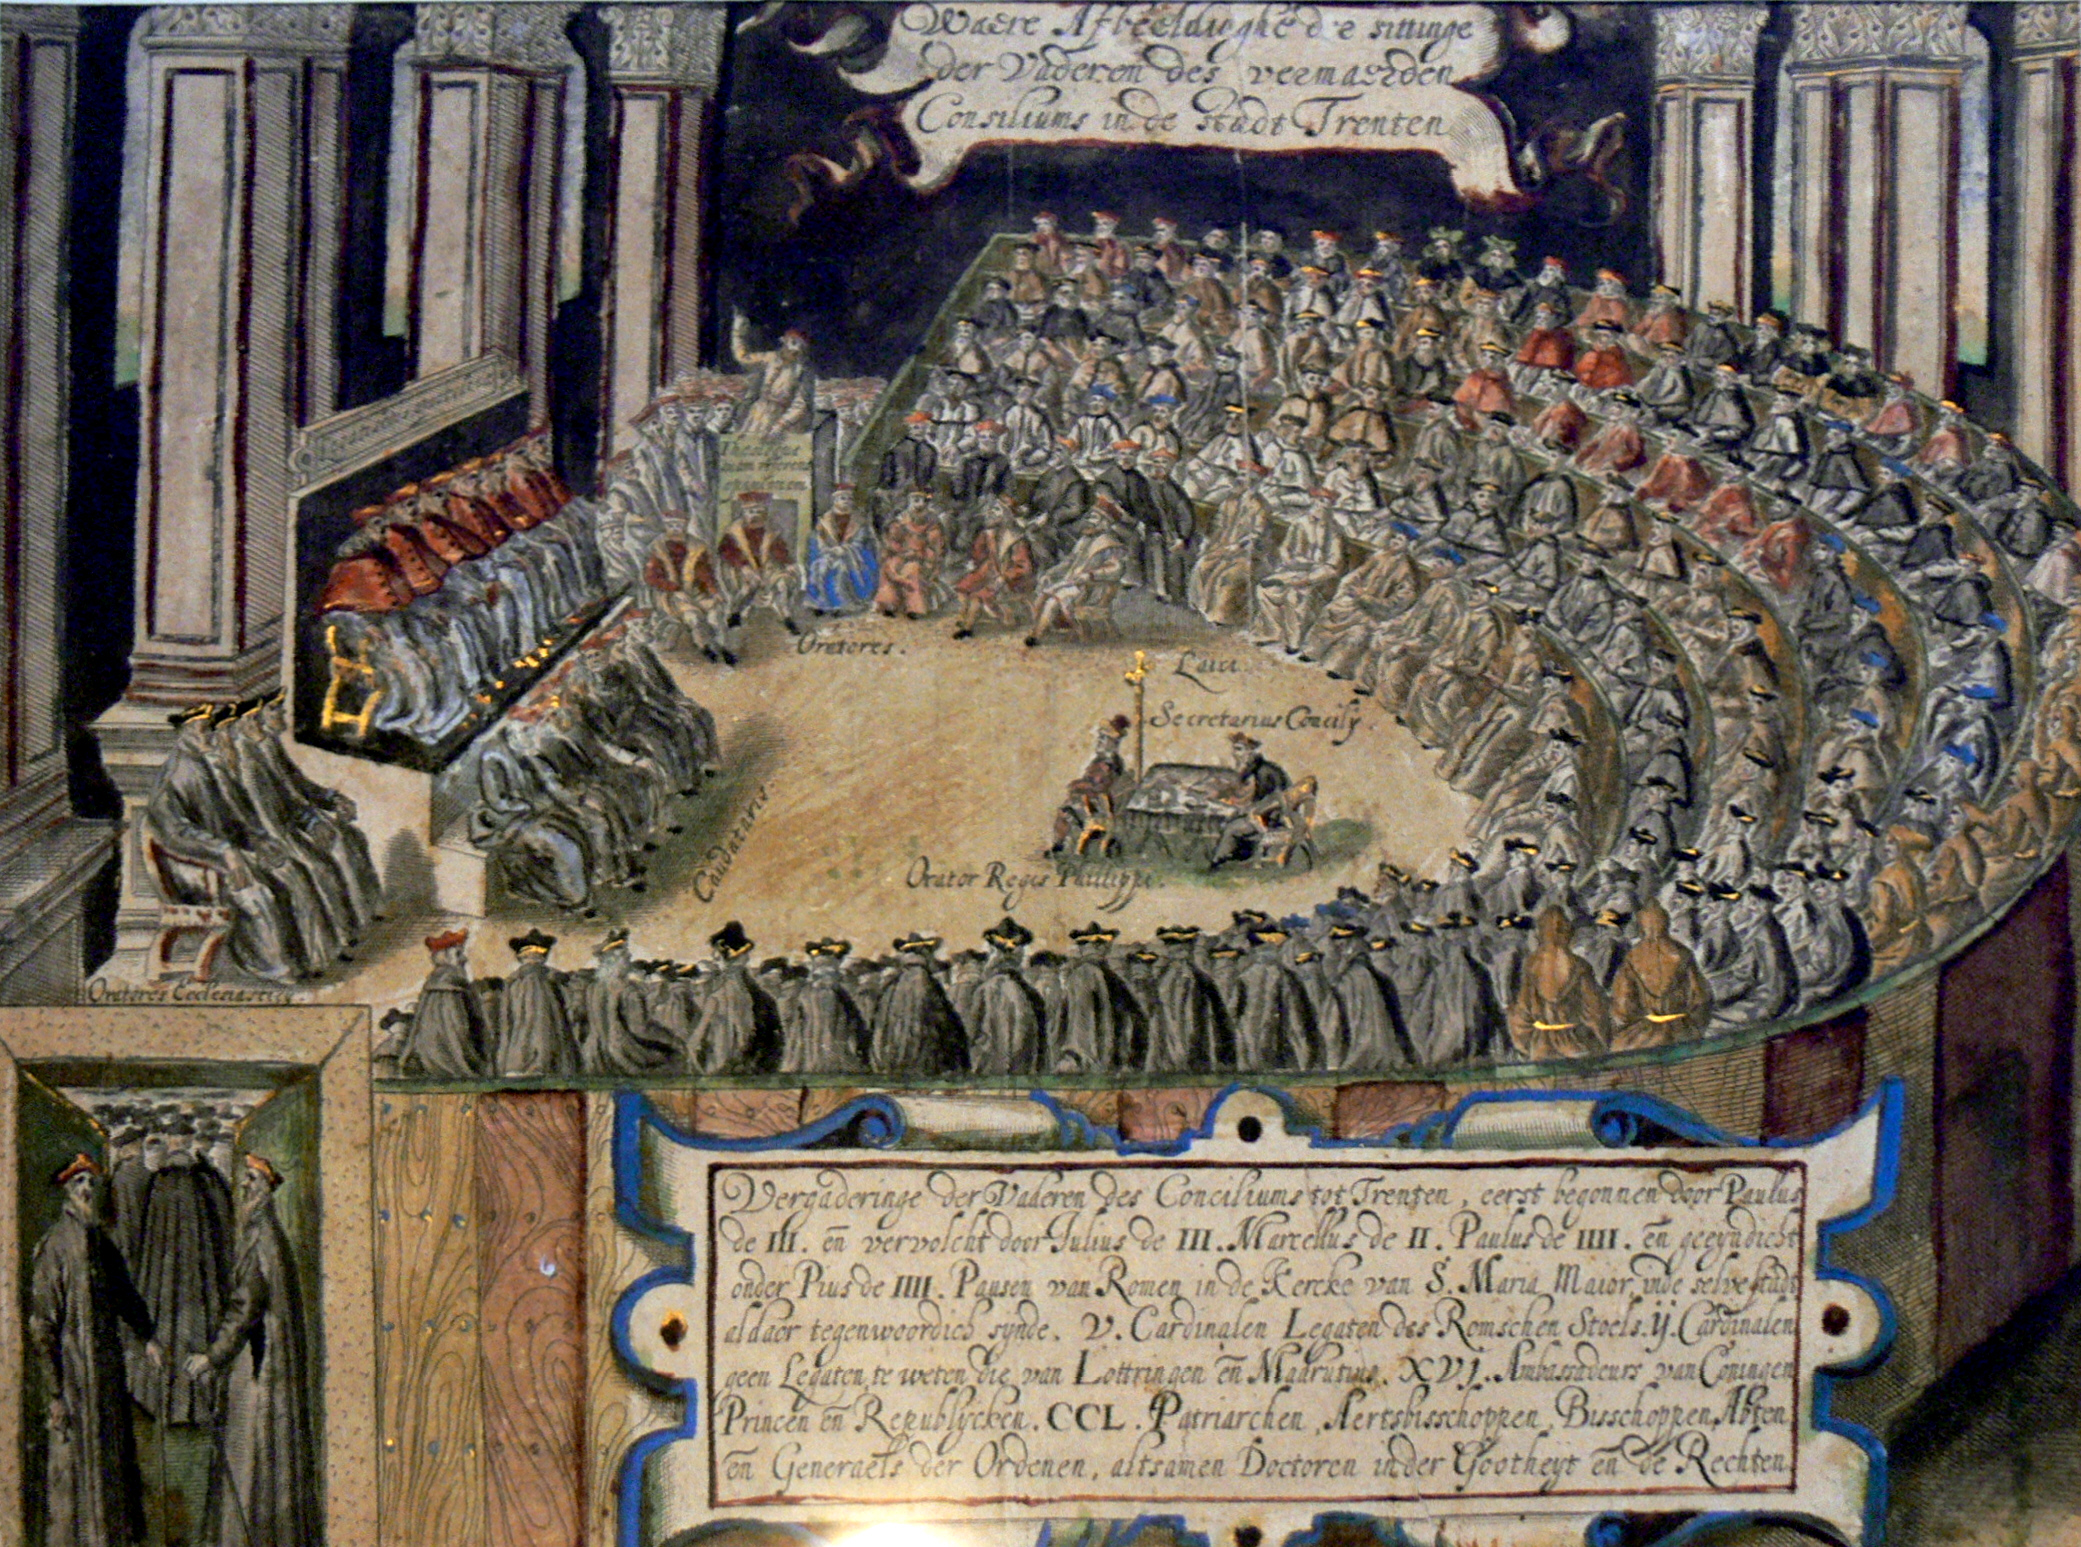 Waere Afbeeldinghe de sittinge
der Vaderen des vermaerden
Consiliums in de Stadt Trenten
Oratores.
Laici
Secretarius Concilij.
Caudatarii.
Orator Regis Philippi.
Oratores Ecclesiastici.
Vergaderinge der Vaderen des Conciliums tot Trenten, eerst begonnen door Paulus
de III. en̄ vervolcht door Julius de III. Marcellus de II. Paulus de IIII. en̄ geeyndicht
onder Pius de IIII. Pausen van Romen in de Kercke van S. Maria Maior, inde selve stadt
aldaer tegenwoordich synde. V. Cardinalen Legaten des Romschen Stoels. ij. Cardinalen
geen Legaten, te weten die van Lottringen en̄ Madrutius. XVJ. Ambassadeurs van Coningen
Princen en̄ Republijcken. CCL. Patriarchen, Aertsbisschoppen, Bisschoppen, Abten
en̄ Generaels der Ordenen, altsamen Doctoren in der Gootheyt en̄ de Rechten